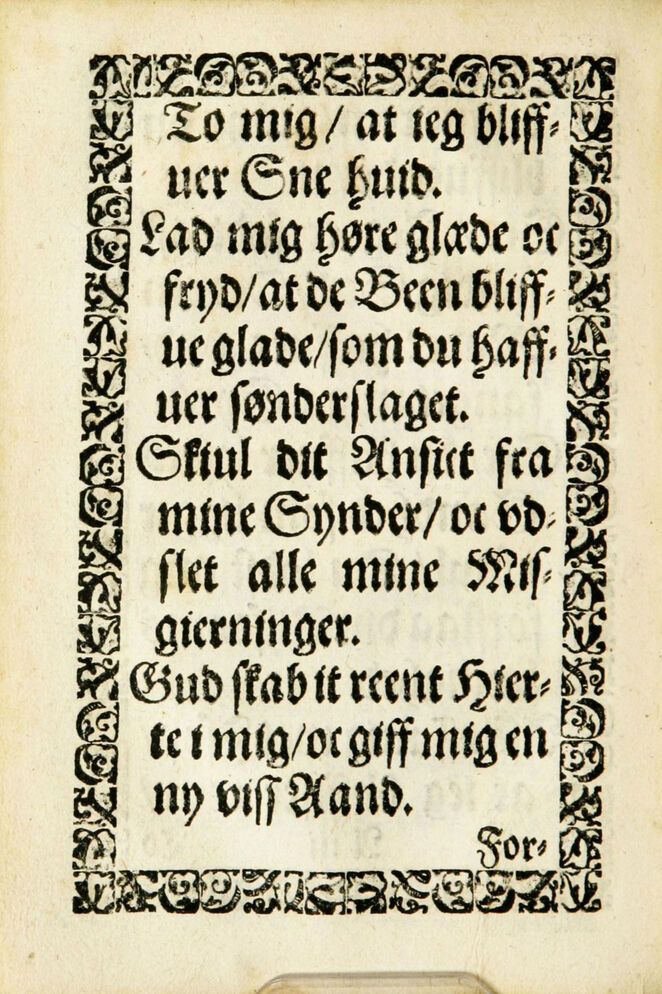 To mig/ at ieg bliff⸗
uer Sne huid.
Lad mig høre glæde oc
fryd/at de Been bliff⸗
ue glade/som du haff⸗
uer sønderslaget.
Skiul dit Ansict fra
mine Synder/ oc vd⸗
slet alle mine Mis⸗
gierninger.
Gud skab it reent Hier⸗
te i mig/oc giff mig en
ny viss Aand.
For⸗